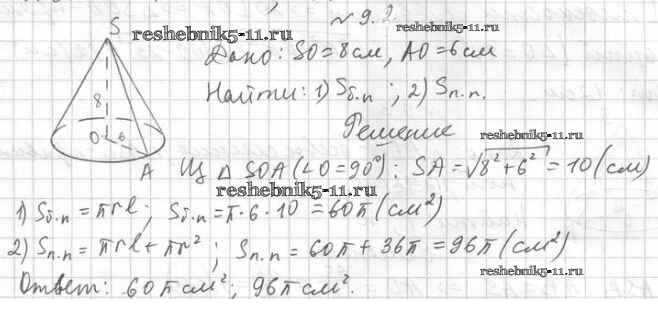 № 9.2.
S
reshebnik5-11.ru
reshebnik5-11.ru
Дано: SO = 8 см, AO = 6 см
8
Найти: 1) Sб.п ; 2) Sп.п.
O 6
Решение
reshebnik5-11.ru
A
Из △ SOA (∠O = 90°): SA = √8² + 6² = 10 (см)
reshebnik5-11.ru
1) Sб.п = πrl; Sб.п = π · 6 · 10 = 60π (см²)
2) Sп.п = πrl + πr² ; Sп.п = 60π + 36π = 96π (см²)
reshebnik5-11.ru
Ответ: 60π см²; 96π см².